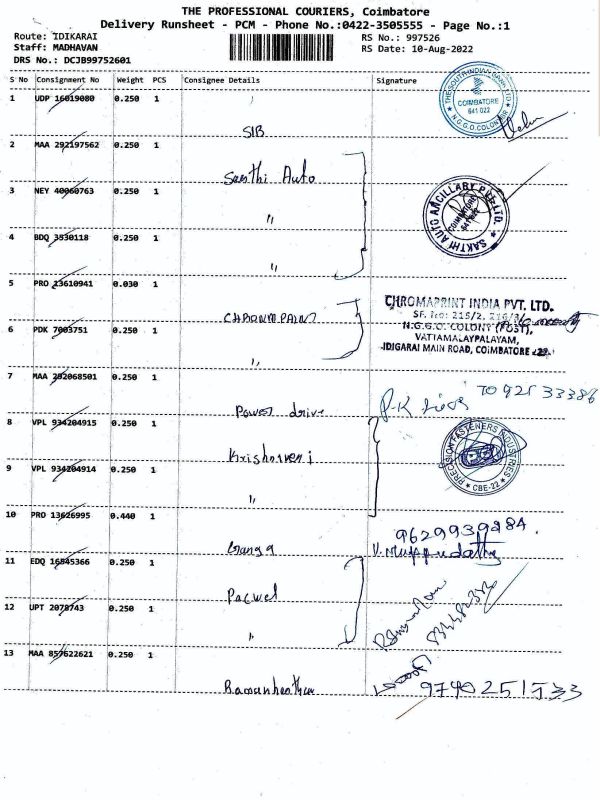 THE PROFESSIONAL COURIERS, Coimbatore
Delivery Runsheet - PCM - Phone No.:0422-3505555 - Page No.:1
Route: IDIKARAI
Staff: MADHAVAN
DRS No.: DCJB99752601
RS No.: 997526
RS Date: 10-Aug-2022
S No Consignment No Weight PCS Consignee Details Signature
1 UDP 16019080 0.250 1
SIB
THE SOUTH INDIAN BANK LTD
COIMBATORE
641 022
N.G.G.O. COLONY
2 MAA 292197562 0.250 1
Santhi Auto
3 NEY 40060763 0.250 1
"
SAKTHI AUTO ANCILLARY PVT. LTD.
COIMBATORE
4 BDQ 3530118 0.250 1
"
5 PRO 13610941 0.030 1
CHROMEPAINT
CHROMAPRINT INDIA PVT. LTD.
SF. No: 215/2,
N.G.G.O. COLONY (POST),
VATTAMALAYPALAYAM,
IDIGARAI MAIN ROAD, COIMBATORE -22.
6 PDK 7003751 0.250 1
"
7 MAA 292068501 0.250 1
Power drive
8 VPL 934204915 0.250 1
Krishnaveni
PRECISION FASTENERS INDUSTRIES
CBE-22
9 VPL 934204914 0.250 1
"
10 PRO 13626995 0.440 1
Ganga
9629939284.
V. Muppudathy
11 EDQ 16545366 0.250 1
Pacwel
12 UPT 2078743 0.250 1
"
13 MAA 857622621 0.250 1
9740251533